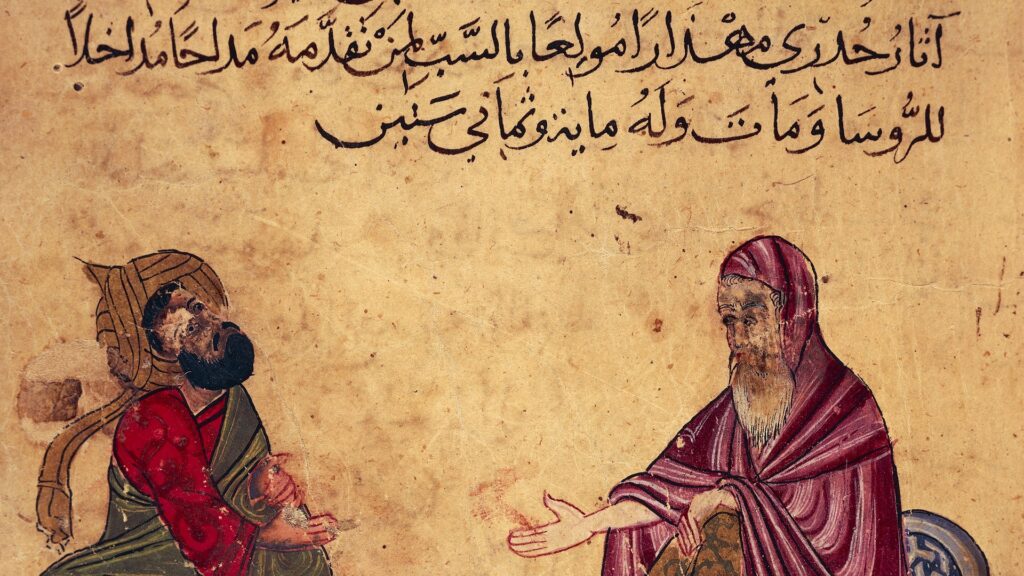 آثارُ جُدَرِي مِهْذَارًا مُولِعًا بالسَّبِّ لِمَنْ تَقَدَّمَهُ مَداحًا مُداخلاً
للرُّوسَا وَمَاتَ وَلَهُ ماية وثماني سَنين